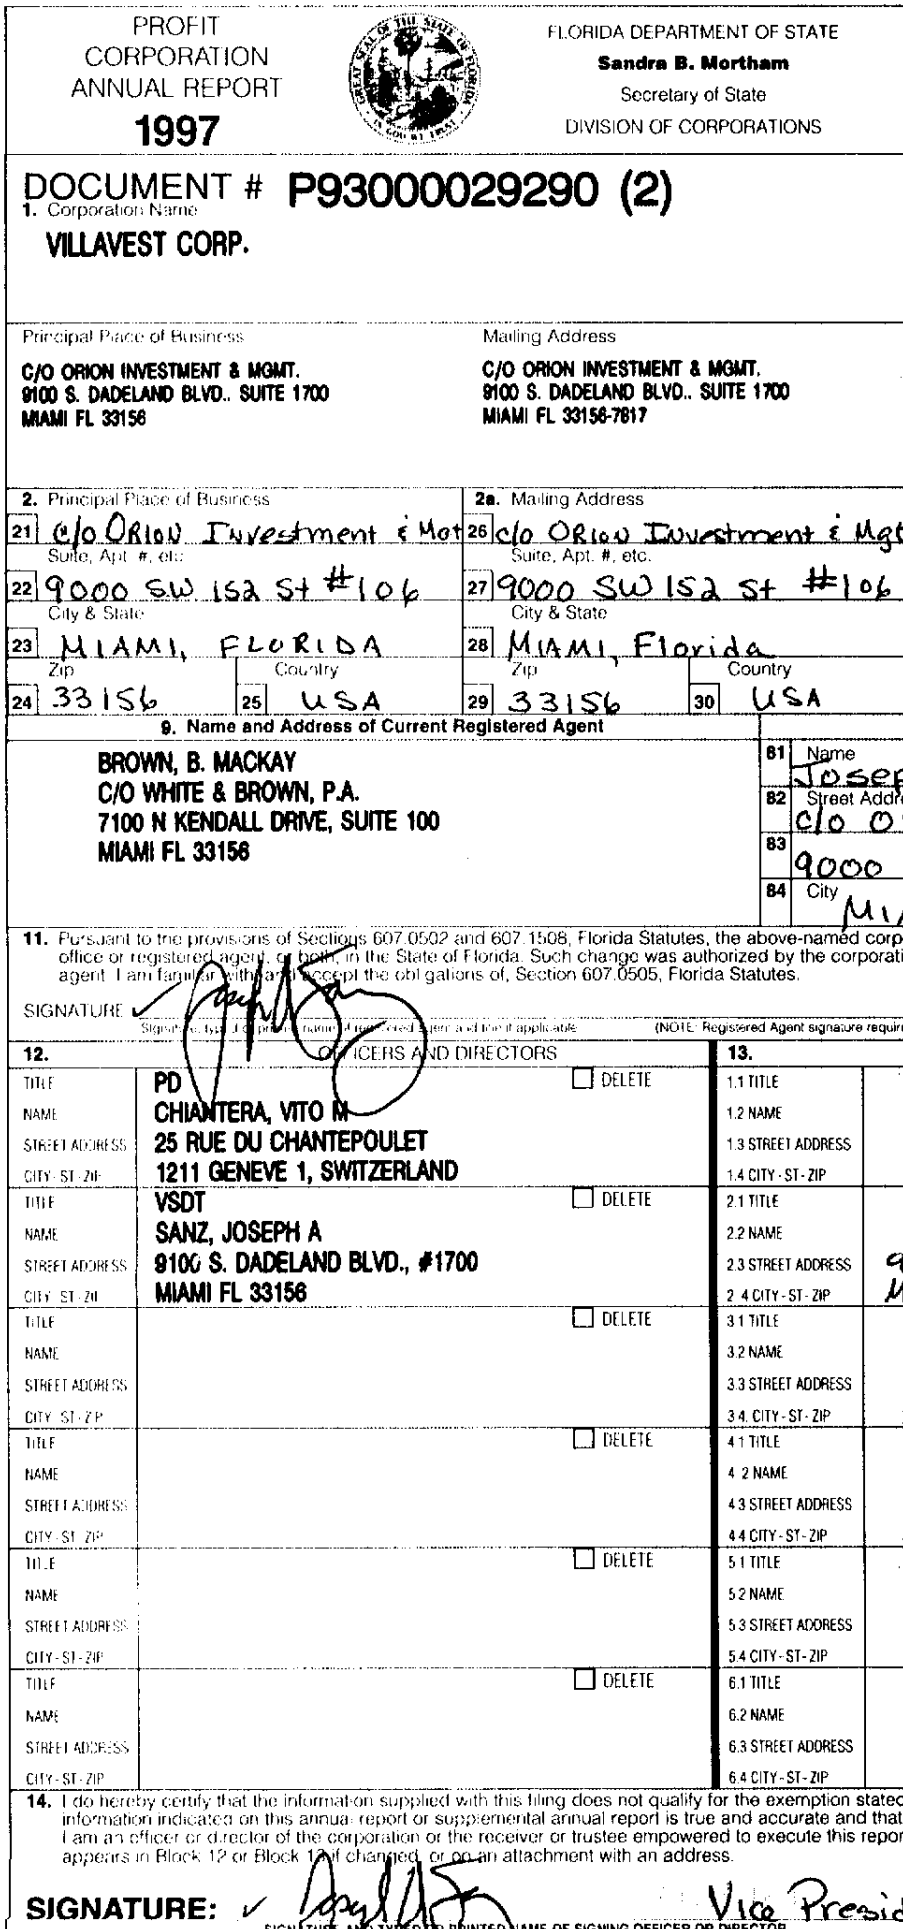 PROFIT
CORPORATION
ANNUAL REPORT
1997
GREAT SEAL OF THE STATE OF FLORIDA
IN GOD WE TRUST
FLORIDA DEPARTMENT OF STATE
Sandra B. Mortham
Secretary of State
DIVISION OF CORPORATIONS
DOCUMENT # P93000029290 (2)
1. Corporation Name
VILLAVEST CORP.
Principal Place of Business
C/O ORION INVESTMENT & MGMT.
9100 S. DADELAND BLVD.. SUITE 1700
MIAMI FL 33156
Mailing Address
C/O ORION INVESTMENT & MGMT.
9100 S. DADELAND BLVD.. SUITE 1700
MIAMI FL 33156-7817
2. Principal Place of Business
21 c/o ORION Investment & Mgt
Suite, Apt. #, etc.
22 9000 SW 152 St #106
City & State
23 MIAMI, FLORIDA
Zip Country
24 33156 25 USA
2a. Mailing Address
26 c/o ORION Investment & Mgt
Suite, Apt. #, etc.
27 9000 SW 152 St #106
City & State
28 MIAMI, Florida
Zip Country
29 33156 30 USA
9. Name and Address of Current Registered Agent
BROWN, B. MACKAY
C/O WHITE & BROWN, P.A.
7100 N KENDALL DRIVE, SUITE 100
MIAMI FL 33156
81 Name
Josep
82 Street Addre
c/o O
83
9000
84 City
MIA
11. Pursuant to the provisions of Sections 607.0502 and 607.1508, Florida Statutes, the above-named corp
office or registered agent, or both, in the State of Florida. Such change was authorized by the corporati
agent. I am familiar with, and accept the obligations of, Section 607.0505, Florida Statutes.
SIGNATURE
Signature, typed or printed name of registered agent and title if applicable (NOTE: Registered Agent signature requir
12. OFFICERS AND DIRECTORS 13.
TITLE PD DELETE 1.1 TITLE
NAME CHIANTERA, VITO M 1.2 NAME
STREET ADDRESS 25 RUE DU CHANTEPOULET 1.3 STREET ADDRESS
CITY-ST-ZIP 1211 GENEVE 1, SWITZERLAND 1.4 CITY-ST-ZIP
TITLE VSDT DELETE 2.1 TITLE
NAME SANZ, JOSEPH A 2.2 NAME
STREET ADDRESS 9100 S. DADELAND BLVD., #1700 2.3 STREET ADDRESS 9
CITY-ST-ZIP MIAMI FL 33156 2 4 CITY-ST-ZIP M
TITLE DELETE 3 1 TITLE
NAME 3.2 NAME
STREET ADDRESS 3.3 STREET ADDRESS
CITY-ST-ZIP 3 4. CITY-ST-ZIP
TITLE DELETE 4 1 TITLE
NAME 4 2 NAME
STREET ADDRESS 4 3 STREET ADDRESS
CITY-ST-ZIP 4 4 CITY-ST-ZIP
TITLE DELETE 5 1 TITLE
NAME 5 2 NAME
STREET ADDRESS 5 3 STREET ADDRESS
CITY-ST-ZIP 5.4 CITY-ST-ZIP
TITLE DELETE 6.1 TITLE
NAME 6.2 NAME
STREET ADDRESS 6.3 STREET ADDRESS
CITY-ST-ZIP 6.4 CITY-ST-ZIP
14. I do hereby certify that the information supplied with this filing does not qualify for the exemption stated
information indicated on this annual report or supplemental annual report is true and accurate and that
I am an officer or director of the corporation or the receiver or trustee empowered to execute this repor
appears in Block 12 or Block 13 if changed, or on an attachment with an address.
SIGNATURE: Vice Presid
SIGNATURE AND TYPED OR PRINTED NAME OF SIGNING OFFICER OR DIRECTOR